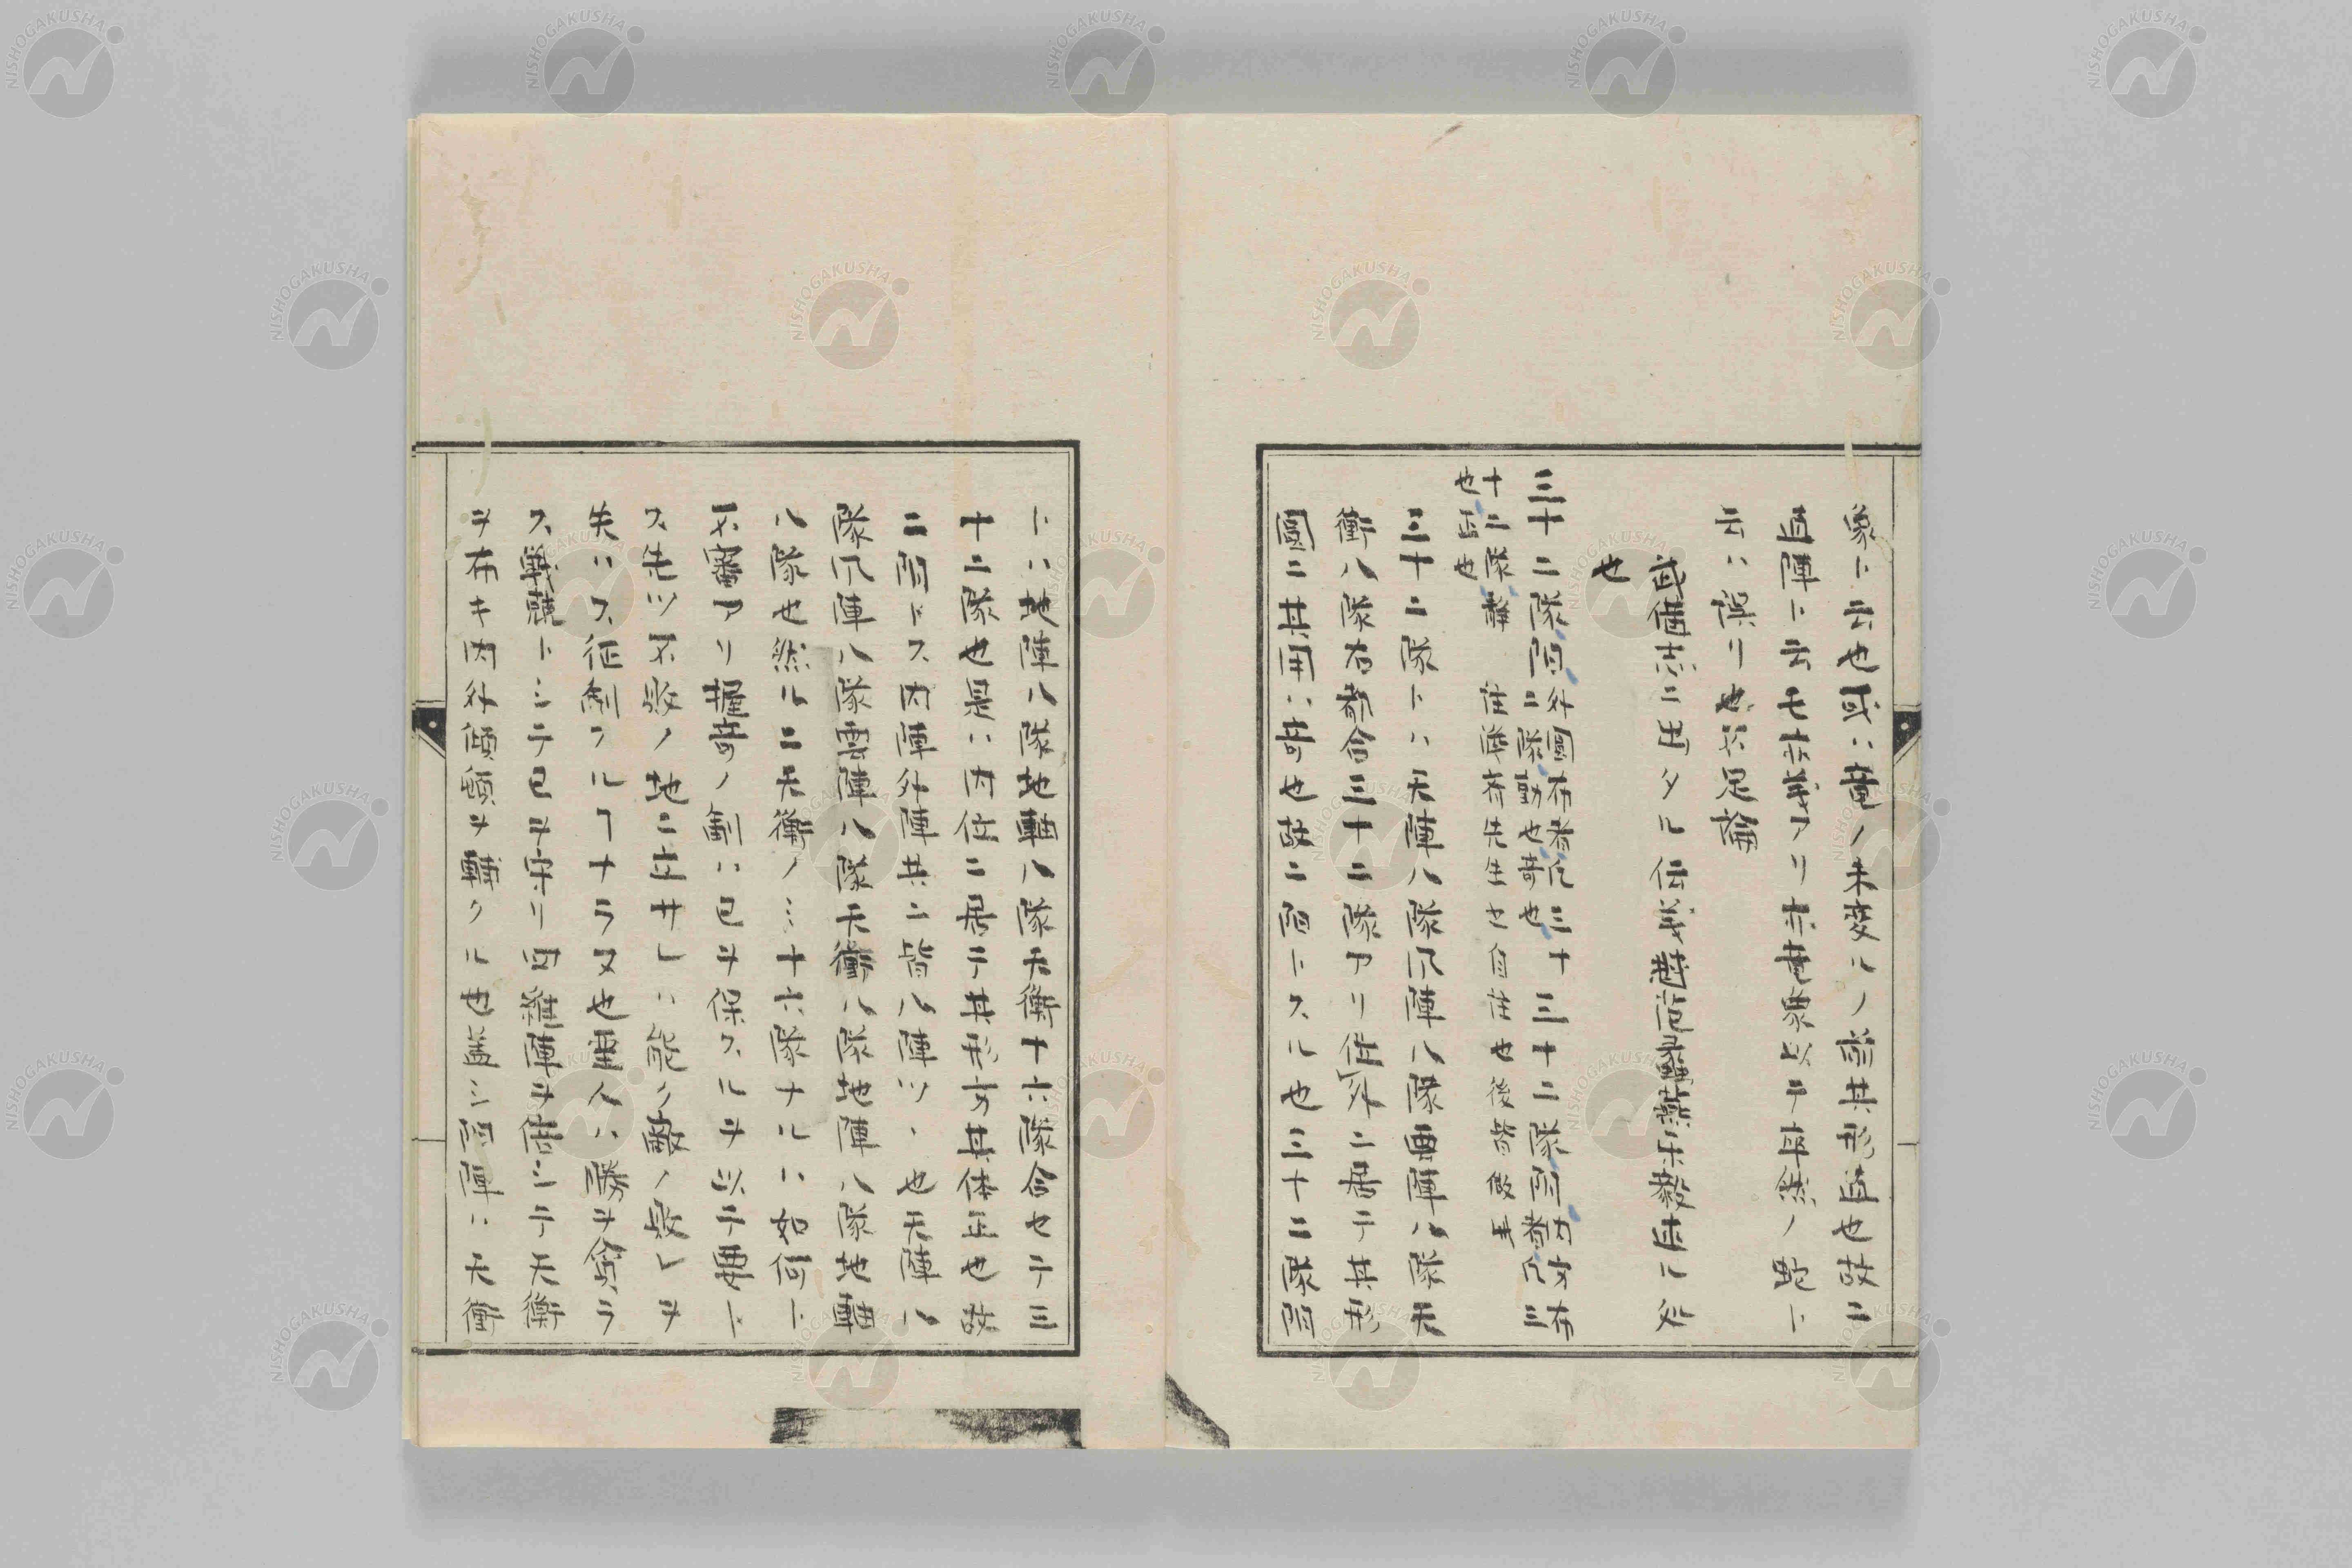 象ト云也或ハ竜ノ未変ルノ前其形直也故ニ
直陣ト云モ其義アリ非竜象以テ率然ノ蛇ト
云ハ誤リ也不足論
武備志ニ出タル伝義
也
三十二隊陽外圓布者凡三十二隊動也奇也三十二隊陰内方布者凡三
十二隊静也正也
三十二隊トハ天陣八隊風陣八隊雲陣八隊天
衝八隊右都合三十二隊アリ俱外ニ居テ其形
圓ニ其用ハ奇也故ニ陽トスル也三十二隊陰
トハ地陣八隊地軸八隊天衡十六隊合セテ三
十二隊也是ハ内位ニ居テ其形方其体正也故
ニ陰トス内陣外陣共ニ皆八陣ツヽ也天陣八
隊風陣八隊雲陣八隊天衝八隊地陣八隊地軸
八隊也然ルニ天衡ノミ十六隊ナルハ如何ト
不審アリ握奇ノ制ハ己ヲ保スルヲ以テ要ト
ス先ツ不敗ノ地ニ立サレハ能ク敵ノ敗レヲ
失ハス征制フルコナラヌ也聖人ハ勝ヲ貪ラ
ス戦競トシテ己ヲ守リ四維陣ヲ備シテ天衡
ヲ布キ内外傾頓ヲ輔クル也蓋シ陰陣ハ天衡
NISHOGAKUSHA